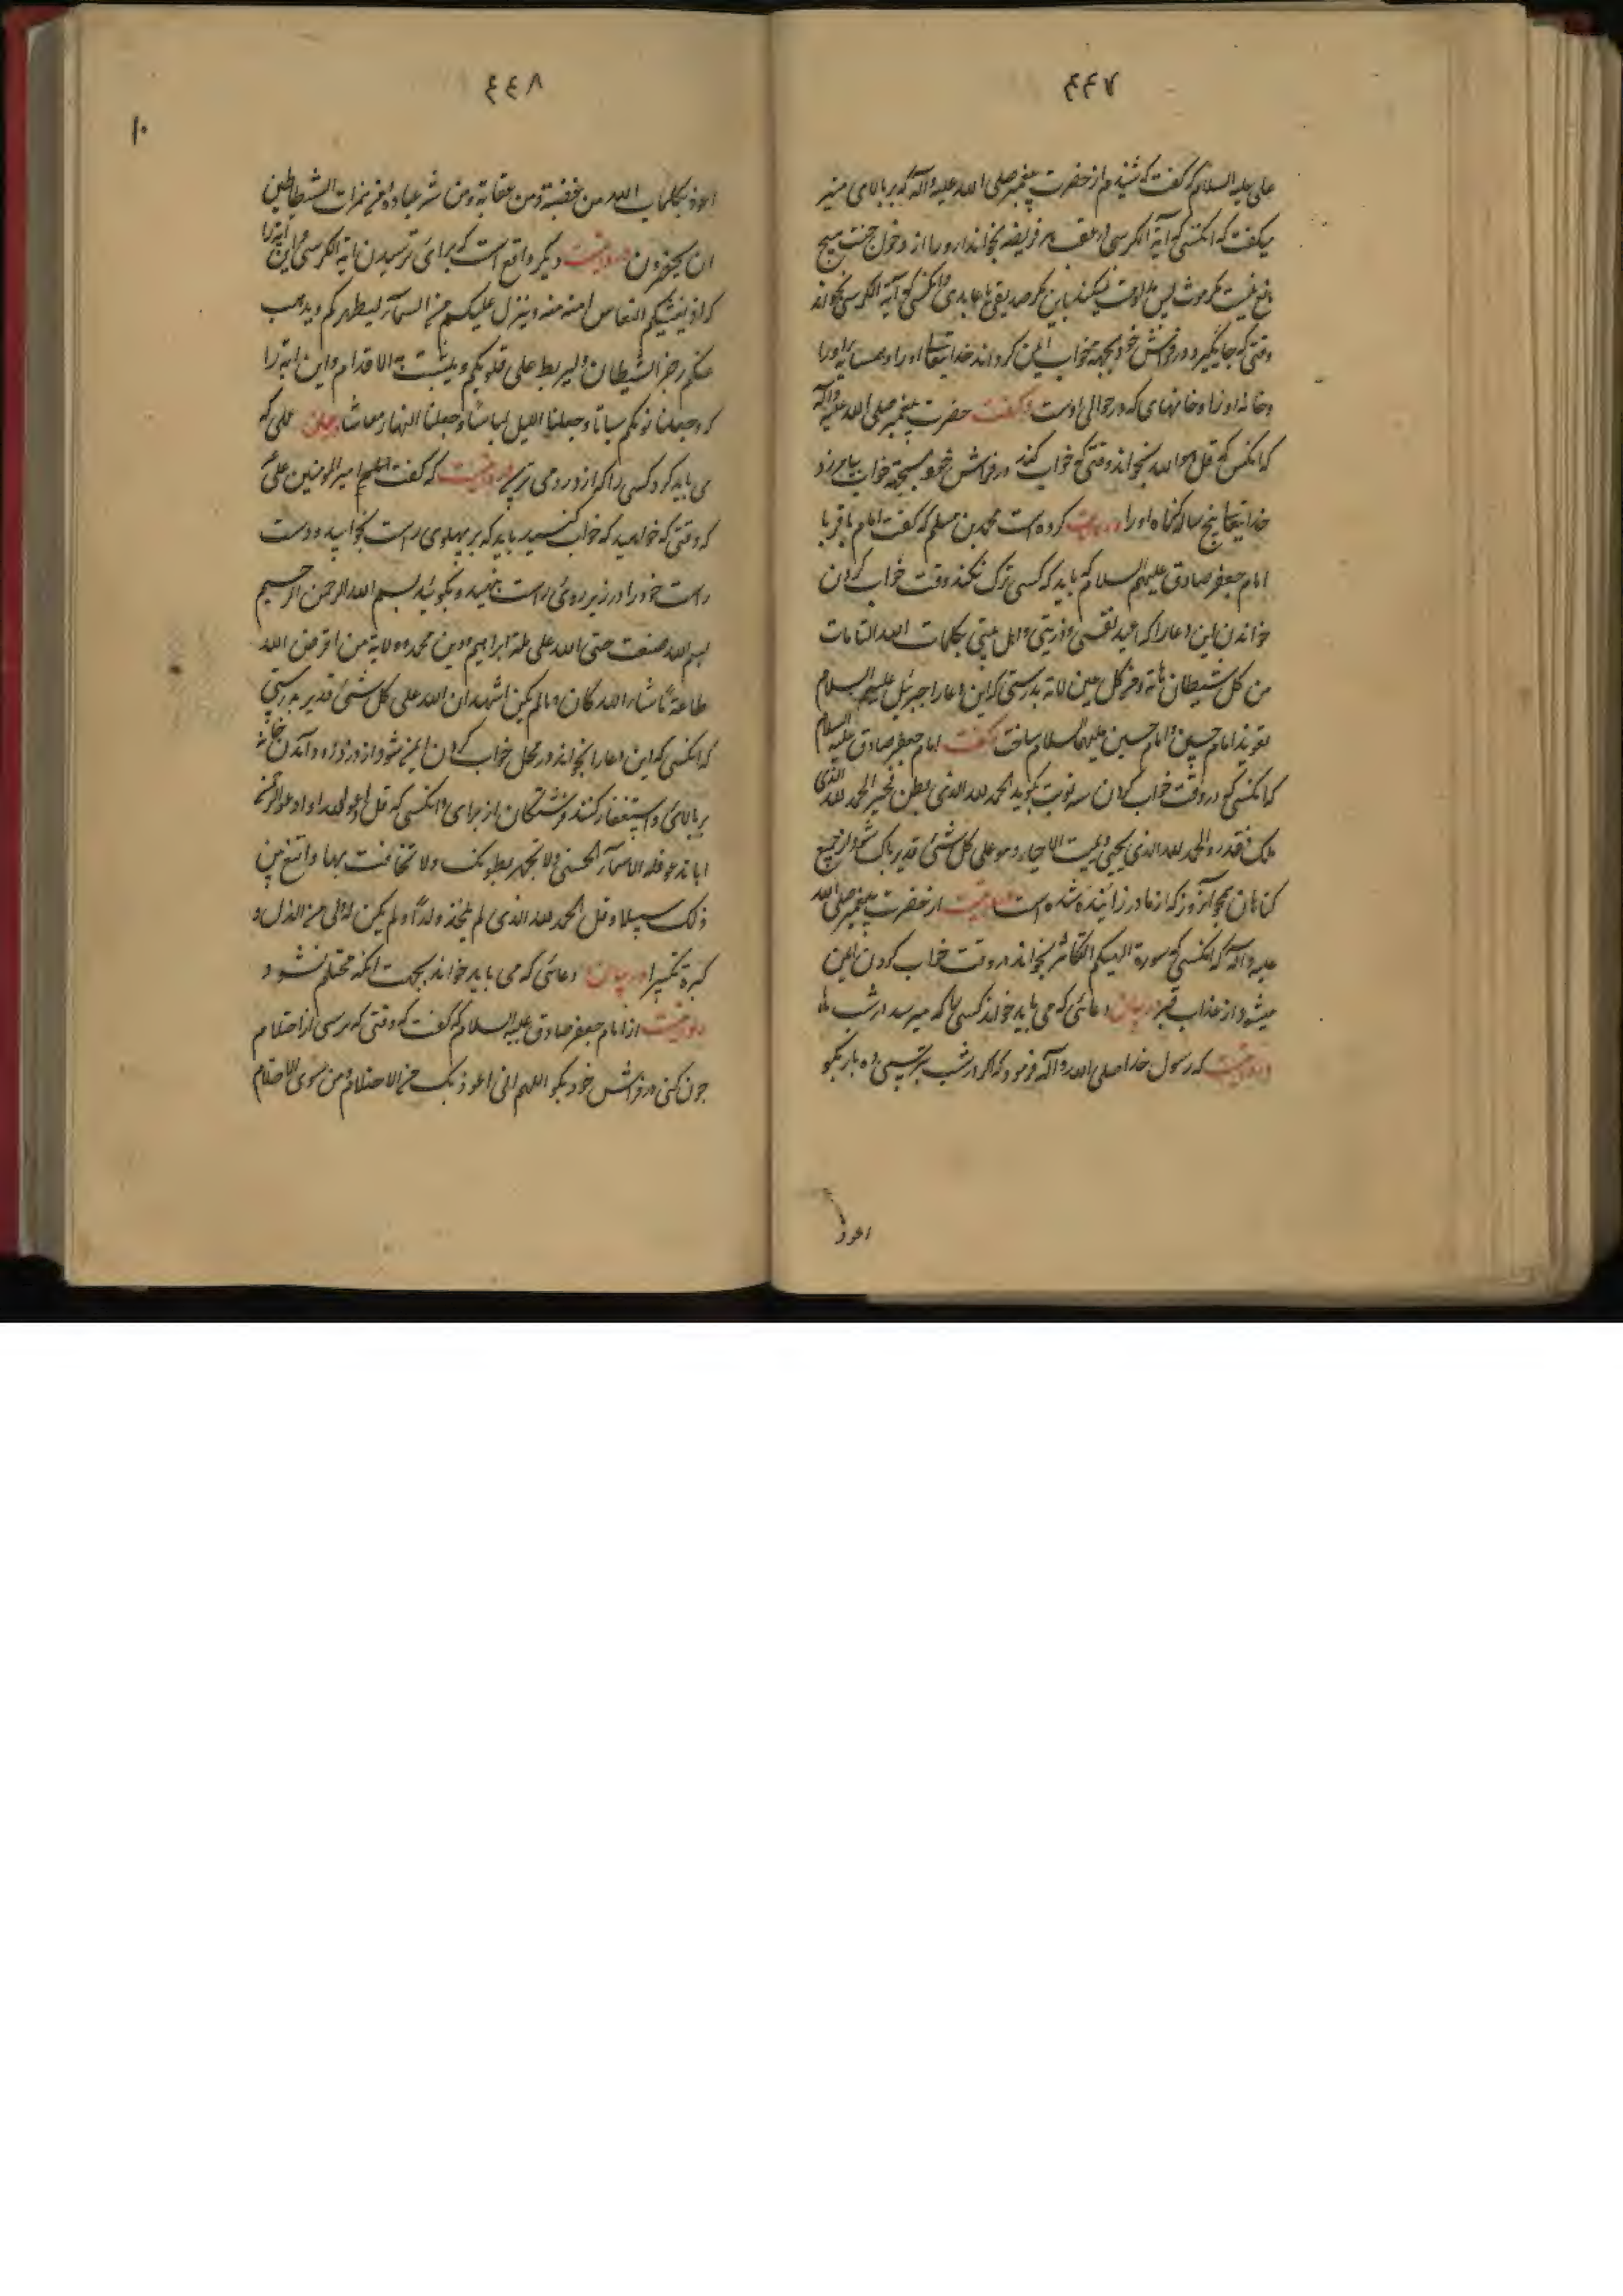 ٤٤٧
علی علیه السلام که گفت که شنیدم از حضرت پیغمبر صلی الله علیه وآله که بر بالای منبر
میگفت که انکسی که آیة الکرسی در عقب هر فریضه بخواند ندارد ورا از دخول جنت هیچ
مانع نیست مکر موت پس مداومت نمیکند باین مکر صدیقی یا عابدی وانکسی که آیة الکرسی بخواند
وقتی که جا بگیرد در فراش خود بجهة خواب ایمن کرداند خدایتعالی اورا وهمسایه اورا
وخانه اورا وخانهای که در حوالی اوست وگفت حضرت پیغمبر صلی الله علیه وآله
که انکس که قل هو الله بخواند وقتی که خواب کند در فراش خود بجهة خواب بیامرزد
خدایتعالی پنجاه ساله کناه اورا وروایت کرده است محمد بن مسلم که گفت امام باقر یا
امام جعفر صادق علیهم السلام که باید که کسی ترک نکند وقت خواب کردن
خواندن این دعارا که اعیذ نفسی وذریتی واهل بیتی بکلمات الله التامات
من کل شیطان هامة ومن کل عین لامة بدرستی که این دعارا جبرئیل علیهم السلام
تعویذ امام حسن وامام حسین علیهما السلام ساخت وگفت امام جعفر صادق علیه السلام
که انکسی که در وقت خواب کردن سه نوبت بکوید الحمد لله الذی بطن فخبر الحمد لله الذی
ملک فقدر والحمد لله الذی یحیی ویمیت الاحیاء وهو علی کل شئ قدیر پاک شود از جمیع
کناهان همچو آنروز که از مادر زائیده شده است ومرویست از حضرت پیغمبر صلی الله
علیه وآله که انکسی که سورة الهیکم التکاثر بخواند در وقت خواب کردن ایمن
میشود از عذاب قبر در بیان دعائی که می باید خواند کسی را که میترسد در شب ها
ومرویست که رسول خدا صلی الله وآله فرمود که اکر در شب بترسی ده بار بکو
اعوذ
٤٤٨
١٠
اعوذ بکلمات الله من غضبه ومن عقابه ومن شر عباده ومن همزات الشیاطین
ان یحضرون ومرویست دیکر واقع است که برای ترسیدن ایة الکرسی واین آیه را
که اذ یغشیکم النعاس امنة منه وینزل علیکم من السمآء لیطهرکم ویذهب
عنکم رجز الشیطان ولیربط علی قلوبکم ویثبت به الاقدام واین ایة را
که وجعلنا نومکم سباتا وجعلنا اللیل لباسا وجعلنا النهار معاشا بیان عملی که
می باید کرد کسی را که از دزد می ترسد ومرویست که گفت امیر المومنین علی
که وقتی که خواهید که خواب کنید باید که بر پهلوی راست بخوابید ودست
راست خود را در زیر روی راست بنهید وبکوئید بسم الله الرحمن الرحیم
بسم الله وضعت جنبی لله علی ملة ابراهیم ودین محمد وولایة من افترض الله
طاعته ما شاء الله کان وما لم یکن اشهد ان الله علی کل شئ قدیر بدرستی
که انکسی که این دعارا بخواند در محل خواب کردن ایمن شود از دزد ودر آمدن خانه
بر بالای واستغفار کنند فرشتکان از برای وانکسی که قل ادعوا الله او ادعوا الرحمن
ایاما تدعوا فله الاسمآء الحسنی ولا تجهر بصلوتک ولا تخافت بها وابتغ بین
ذلک سبیلا وقل الحمد لله الذی لم یتخذ ولدا ولم یکن له ولی من الذل و
کبره تکبیرا در بیان دعائی که می باید خواند بجهت انکه محتلم نشود
مرویست از امام جعفر صادق علیه السلام که گفت که وقتی که ترسی از احتلام
چون کنی در فراش خود بکو اللهم انی اعوذ بک من الاحتلام ومن سوء الاحلام